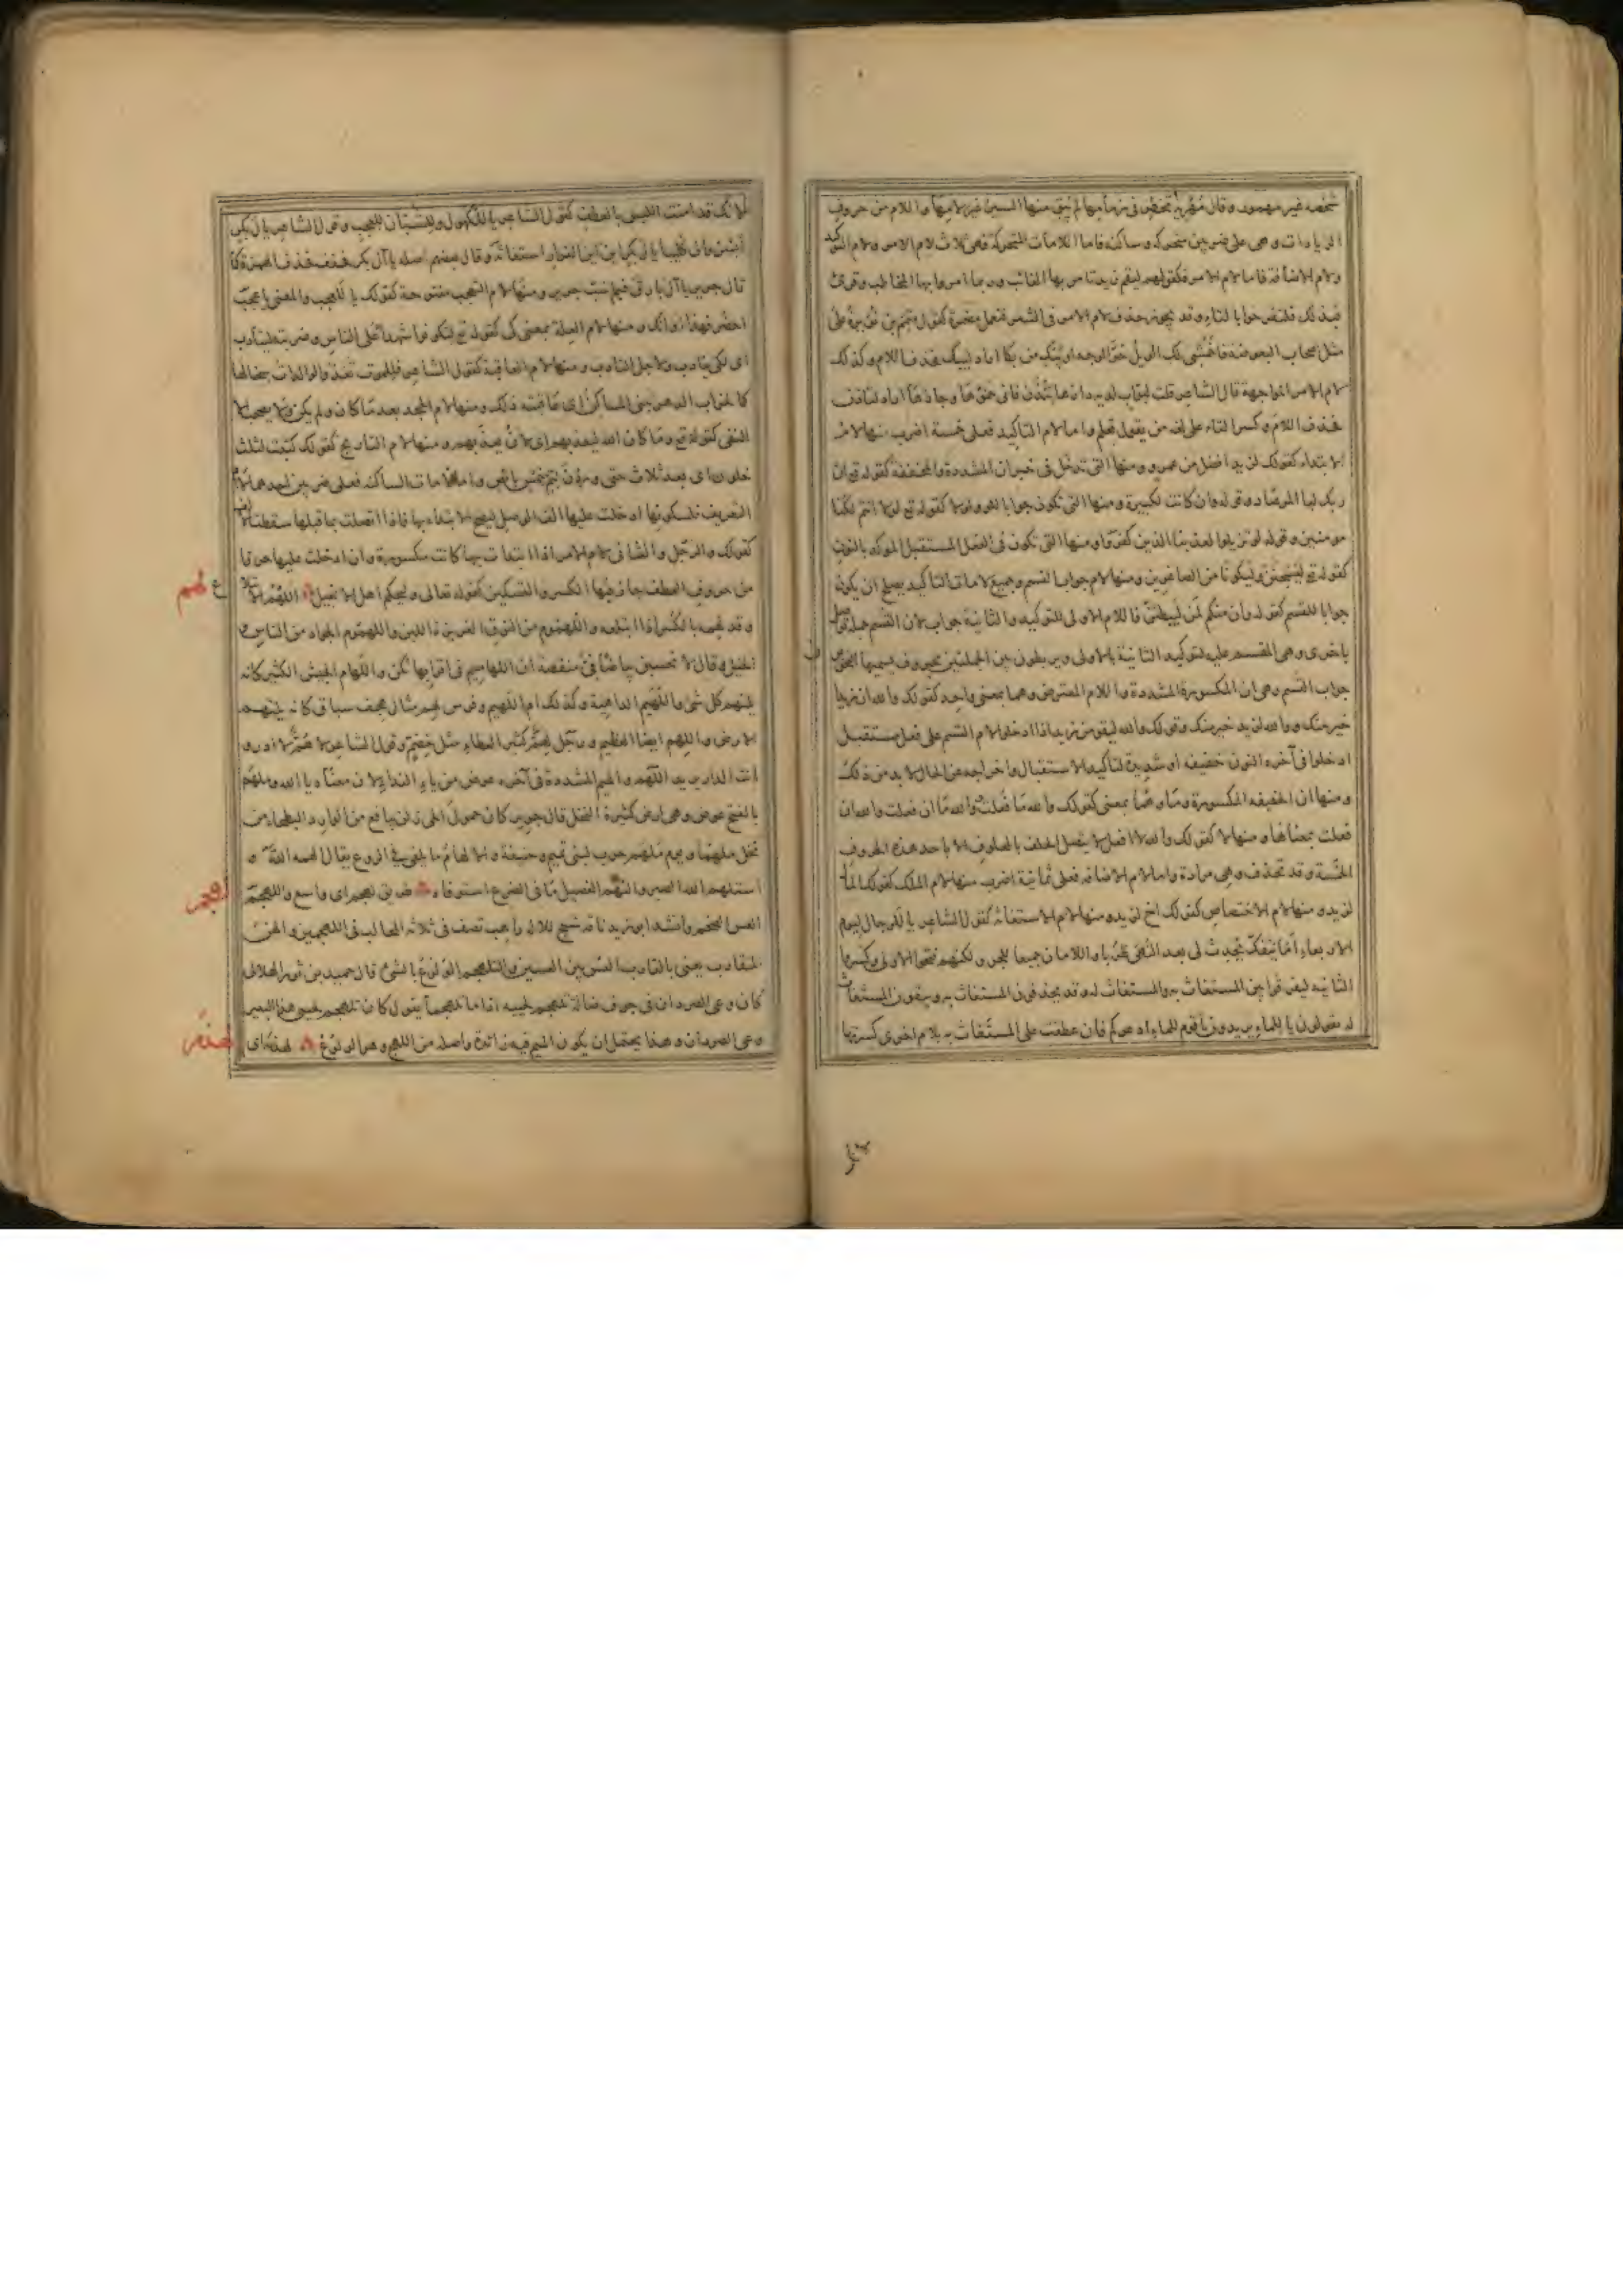 شخصه غير مهموز وقال مزرد تخطى في زمامها لم يبق منها السير غير لامها واللام من حروف
الزيادات وهي على ضربين متحركة وساكنة فاما اللامات المتحركة فهي ثلاث لام الامر ولام التوكيد
ولام الاضافة فاما لام الامر فكقولهم ليقم زيد تامر بها الغائب وربما امروا بها المخاطب وقرئ
فبذلك فلتفرحوا بالتاء وقد يجوز حذف لام الامر في الشعر فتعمل مضمرة كقول متمم بن نويرة على
مثل اصحاب البعوضة فاخمشي لك الويل حر الوجه او يبك من بكا اراد ليبك فحذف اللام وكذلك
لام الامر المواجهة قال الشاعر قلت لبواب لديه دارها تئذن فاني حمؤها وجارها اراد لتأذن
فحذف اللام وكسر التاء على لغة من يقول تعلم واما لام التاكيد فعلى خمسة اضرب منها لام
الابتداء كقولك لزيد افضل من عمرو ومنها التي تدخل في خبر ان المشددة والمخففة كقوله تع ان
ربك لبا المرصاد وقوله وان كانت لكبيرة ومنها التي تكون جوابا للو ولولا كقوله تع لولا انتم لكنا
مومنين وقوله لو تزيلوا لعذبنا الذين كفروا ومنها التي تكون في الفعل المستقبل الموكد بالنون
كقوله تع ليسجنن وليكونا من الصاغرين ومنها لام جواب القسم وجميع لامات التاكيد يصلح ان يكون
جوابا للقسم كقوله وان منكم لمن ليبطئن فاللام الاولى للتوكيد والثانية جواب لان القسم جملة توصل
باخرى وهي المقسم عليه لتوكيد الثانية بالاولى ويربطون بين الجملتين بحروف يسميها النحويون
جواب القسم وهي ان المكسورة المشددة واللام المعترض وهما بمعنى واحد كقولك والله ان زيدا
خير منك ووالله لزيد خير منك وقولك والله ليقومن زيد اذا ادخلوا لام القسم على فعل مستقبل
ادخلوا في آخره النون خفيفة او شديدة لتاكيد الاستقبال واخراجه عن الحال لابد من ذلك
ومنها ان الخفيفة المكسورة وما وهما بمعنى كقولك والله ما فعلت ووالله ما ان فعلت والله ان
فعلت بمعناها ومنها لا كقولك والله لا افعل لا يتصل الحلف بالمحلوف الا باحد هذه الحروف
الخمسة وقد تحذف وهي مرادة واما لام الاضافة فعلى ثمانية اضرب منها لام الملك كقولك المال
لزيد ومنها لام الاختصاص كقولك اخ لزيد ومنها لام الاستغاثة كقول الشاعر يا للرجال ليوم
الاربعاء اما ينفك يحدث لي بعد النهى طربا واللامان جميعا للجر ولكنهم فتحوا الاولى وكسروا
الثانية ليفرقوا بين المستغاث به والمستغاث له وقد يحذفون المستغاث به ويبقون المستغاث
له يقولون يا للماء يريدون يا قوم للماء ادعوكم فان عطفت على المستغاث به بلام اخرى كسرتها
لانك قد امنت اللبس بالعطف كقول الشاعر يا للكهول وللشبان للعجب وقول الشاعر يا لبكر
انشروا لي كليبا يا لبكر اين اين الفرار استغاثة وقال بعضهم اصله يا آل بكر فخفف فحذف الهمزة كما
قال جرير يا آل بارق فيم سبت جرير ومنها لام التعجب مفتوحة كقولك يا للعجب والمعنى يا عجب
احضر فهذا اوانك ومنها لام العلة بمعنى كي كقوله تع لتكونوا شهداء على الناس وضربته ليتأدب
اي لكي يتأدب ولاجل التأدب ومنها لام العاقبة كقول الشاعر فللموت تغذو الوالدات سخالها
كما لخراب الدهر تبنى المساكن اي عاقبته ذلك ومنها لام الجحد بعد ما كان ولم يكن ولا يصحب الا
النفي كقوله تع وما كان الله ليعذبهم اي لان يعذبهم ومنها لام التاريخ كقولك كتبت لثلاث
خلون اي بعد ثلاث واما اللامات الساكنة فعلى ضربين احدهما لام
التعريف فلسكونها ادخلت عليها الف الوصل ليصح الابتداء بها فاذا اتصلت بما قبلها سقطت الالف
كقولك والرجل والثاني لام الامر اذا ابتدات بها كانت مكسورة وان ادخلت عليها حرفا
من حروف العطف جاز فيها الكسر والتسكين كقوله تعالى وليحكم اهل الانجيل اللهم الابتلاع
لهم
وقد لهمه بالكسر اذا ابتلعه واللهموم من النوق الغزيرة اللبن واللهموم الجواد من الناس و
الخيل وقال لا تحسبن بياضا في منقصة ان اللهاميم في اقرابها بلق واللهام الجيش الكثير كانه
يلتهم كل شئ واللهيم الداهية وكذلك ام اللهيم وفرس لهم مثال هجف سباق كانه يلتهم
الارض واللهم ايضا العظيم ورجل لهم كثير العطاء مثل خضم وقول الشاعر لا هم لا ادري و
انت الداري يريد اللهم والميم المشددة في آخره عوض من ياء النداء لان معناه يا الله وملهم
بالفتح موضع وهي ارض كثيرة النخل قال جرير كان حمول الحي زلن بيافع من الوارد البطحاء من
نخل ملهما ويوم ملهم حرب لبني تميم وحنيفة والالهام ما يلقى في الروع يقال الهمه الله و
استلهم الله الصبر والتهم الفصيل ما في الضرع استوفاه طريق لهجم اي واسع واللهجم
لهجم
العس الضخم وانشد ابو زيد ناقة شيخ للاله راهب تصف في ثلاثة المحالب في اللهجمين والهن
المقارب يعني بالمقارب العس بين العسين والتلهجم الولوع بالشئ قال حميد بن ثور الهلالي
كان وحي الصردان في جوف ضالة تلهجم لحييه اذا ما تلهجما يقول كان تلهجم لحيي هذا البعير
وحي الصردان وهذا يحتمل ان يكون الميم فيه زائدة واصله من اللهج وهو الولوع لهذمه اي
لهذم